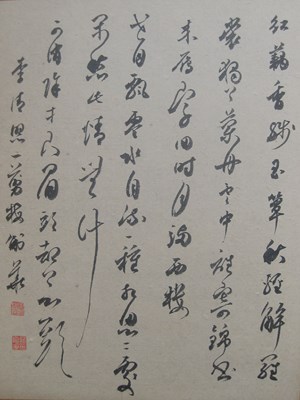 紅藕香殘玉簟秋輕解羅
裳獨上蘭舟雲中誰寄錦書
來雁字回時月滿西樓
花自飄零水自流一種相思兩處
閒愁此情無計
可消除才下眉頭卻上心頭
李清照一剪梅